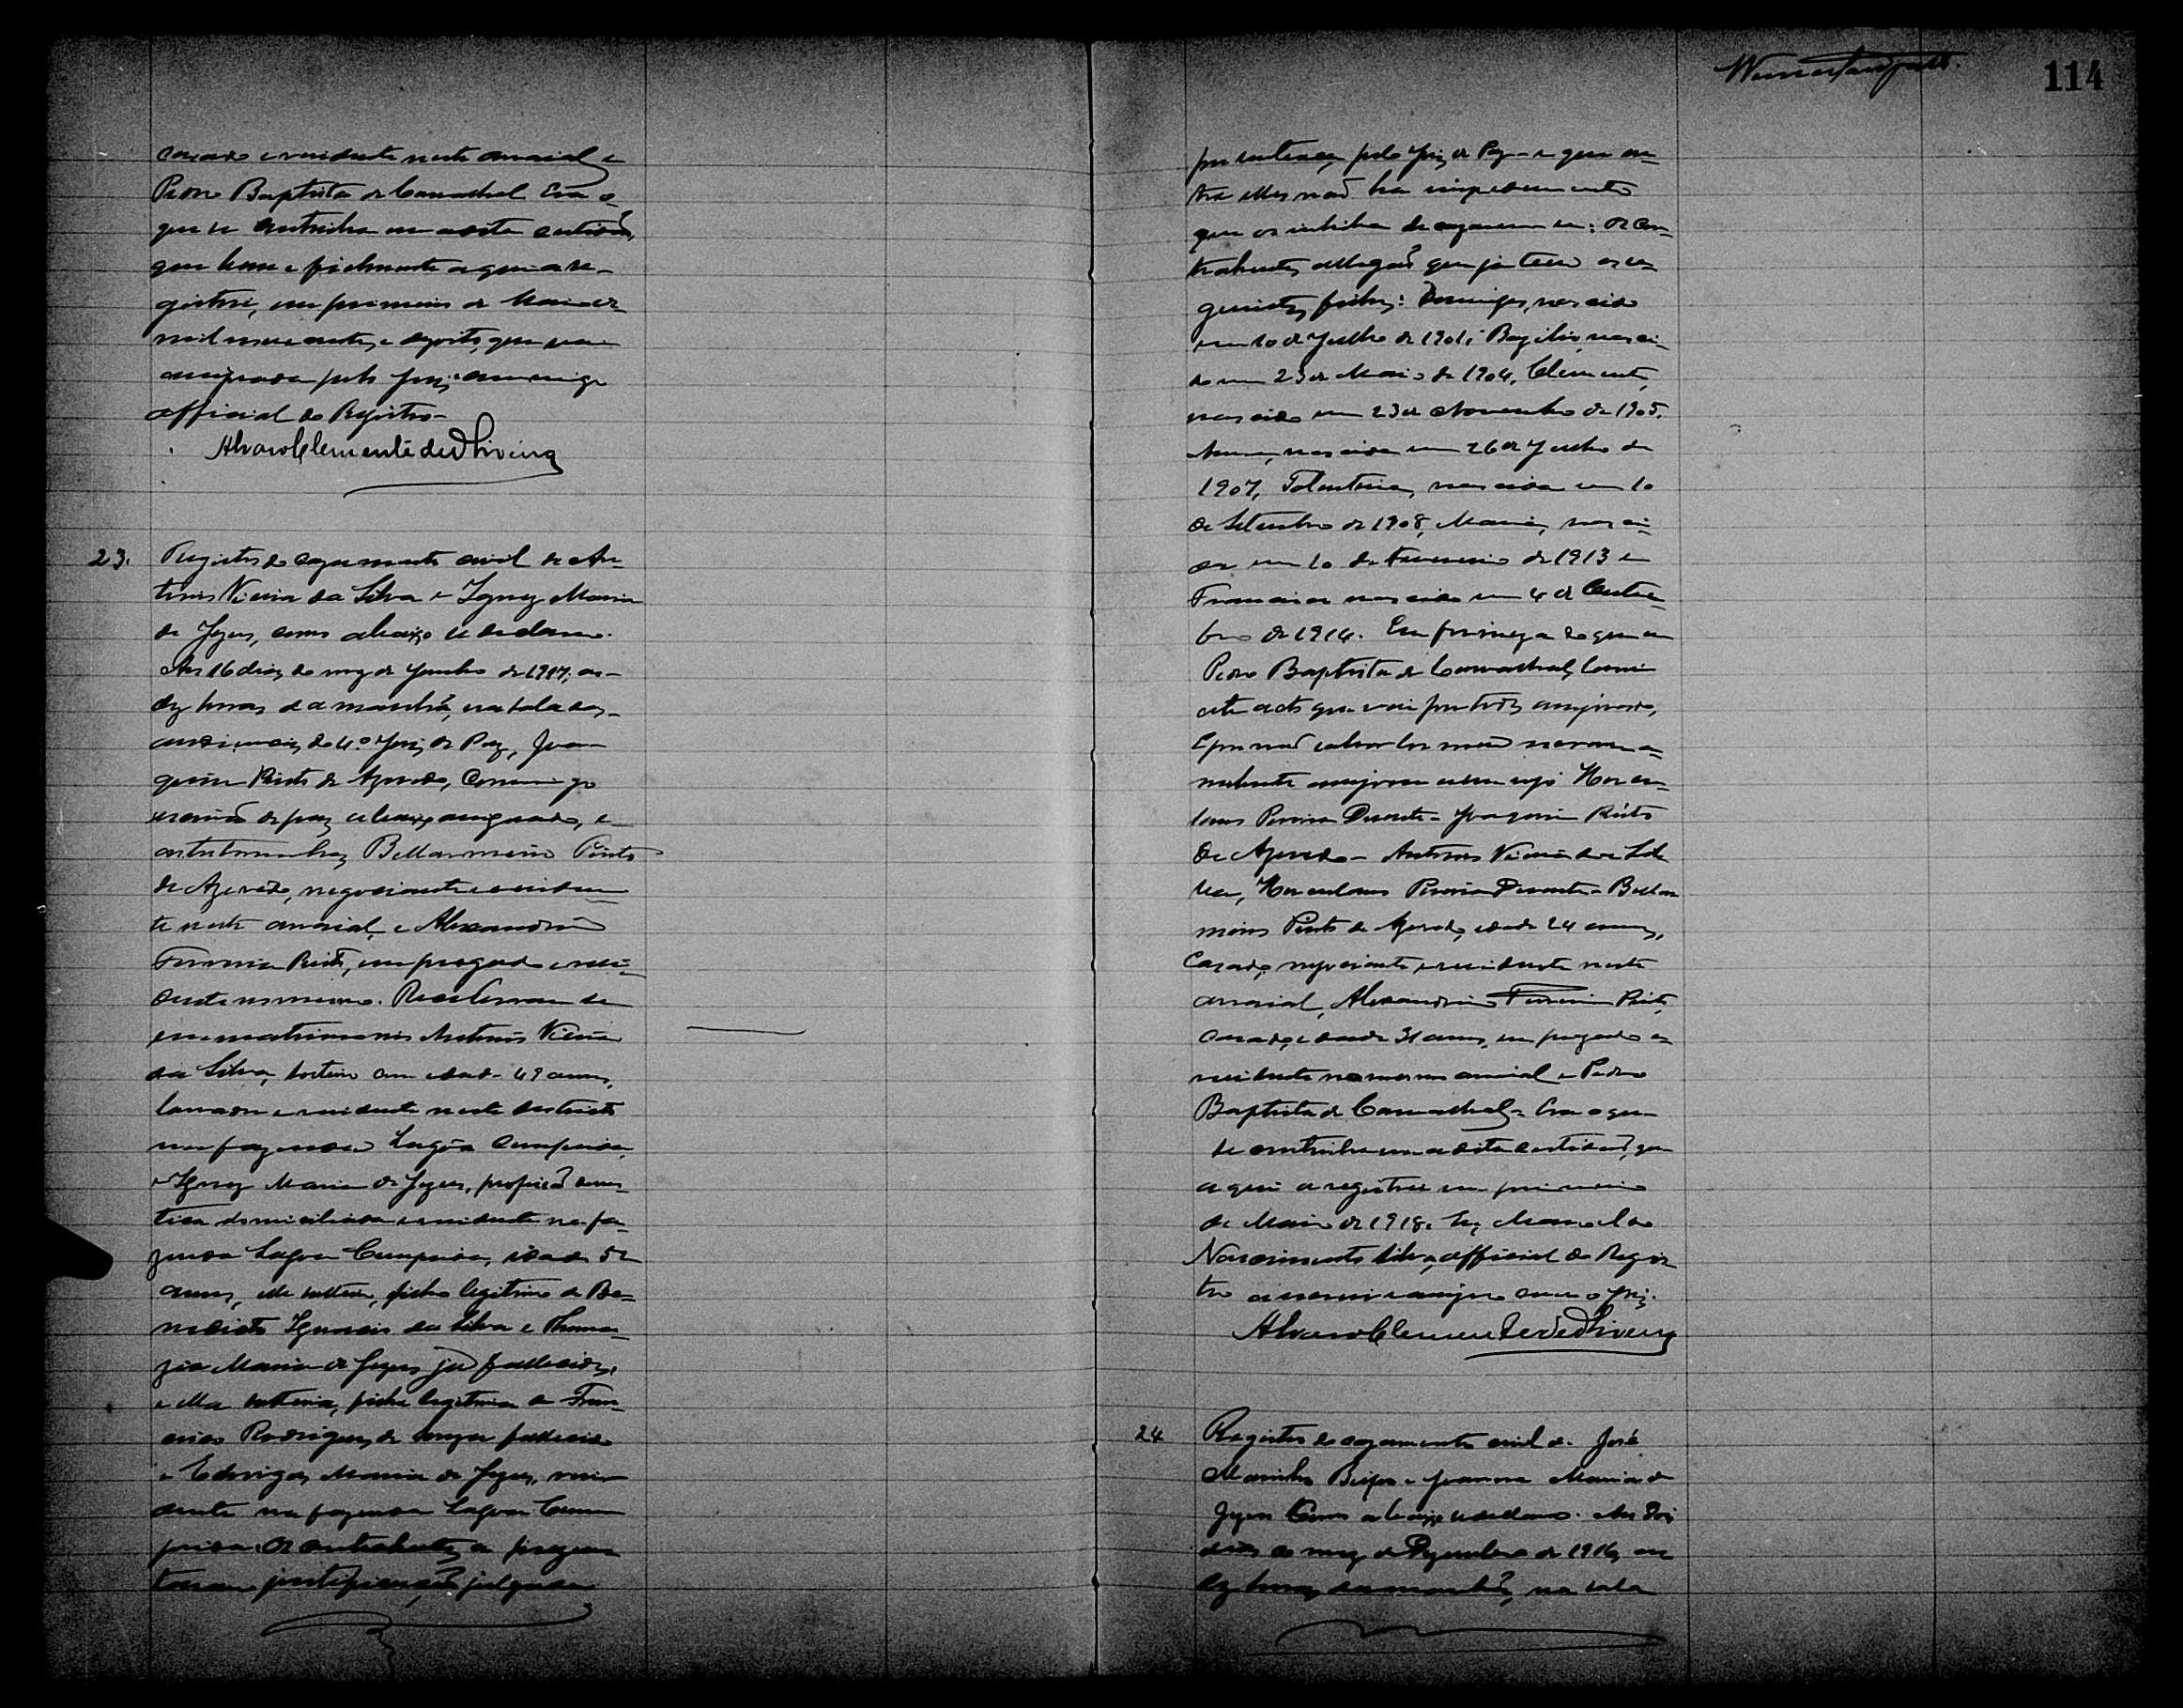 casado e residente neste arraial e
Pedro Baptista de Carvalhal Era o
que se continha em a dita certidão,
que bem e fielmente aqui a re-
gistrei, em primeiro de Maio de
mil novecentos e dezoito, que vae
assignada pelo Juiz commigo
official do Registro-
Alvaro Clemente de Oliveira
23. Registro do cazamento civil de An-
tonio Vieira da Silva e Ignez Maria
de Jezus, como abaixo se declara.
Aos 16 dias do mez de Junho de 1917, as
dez horas da manhã, na sala das
audiencias do 4º Juiz de Paz, Joa-
quim Pinto de Azevedo, Commigo
escrivão de paz abaixo assignado, e
as testemunhas Bellarmino Pinto
de Azevedo, negociante e residen-
te neste arraial, e Alexandrino
Ferreira Pinto, empregado e resi-
dente no mesmo. Receberam-se
em matrimonio Antonio Vieira
da Silva, solteiro com edade 49 annos,
lavrador e residente neste districto
na fazenda Lagôa Comprida,
e Ignez Maria de Jezus, profissão domes-
tica domiciliada e residente na fa-
zenda Lagoa Comprida, idade 52
annos, elle solteiro, filho legitimo de Be-
nedicto Ignacio da Silva e Thoma-
zia Maria de Jezus já fallecidos,
e ella solteira, filha legitima de Fran-
cisco Rodrigues de fallecido
e Edwiges Maria de Jezus, resi-
dente na fazenda Lagoa Com
prida. Os contrahentes a prezen-
taram justificação julgada
114
por sentença pelo Juiz de Paz - e que en-
tre elles não ha impedimento
que os inhiba de cazarem-se: Os con-
trahentes allegão que ja tem os se-
guintes filhos: Domingos, nascido
em 10 de Julho de 1901; Bazilio, nasci-
do em 23 de Maio de 1904, Clemente,
nascido em 23 de Novembro de 1905.
Anna, nascida em 26 de Julho de
1907, Tolentina, nascida em 10
de Setembro de 1908, Maria, nasci-
da em 10 de Fevereiro de 1913 e
Francisca nascida em 4 de Outu-
bro de 1914. Em firmeza do que eu
Pedro Baptista de Carvalhal, lavrei
este acto que vai por todos assignado,
E por não saber ler nem escrever a
nubente assignou a seu rogo Hercu-
lano Pereira Duarte - Joaquim Pinto
de Azevedo - Antonio Vieira da Sil-
va, Herculano Pereira Duarte - Bellar
mino Pinto de Azevedo, edade 24 annos,
Casado, negociante, e residente neste
arraial, Alexandrino Ferreira Pinto,
casado, edade 31 annos, empregado e
residente no mesmo arraial e Pedro
Baptista de Carvalhal - Era o que
se continha em a dita certidão, que
aqui a registrei em primeiro
de Maio de 1918. Eu, Manoel do
Nascimento Silva, official do Regis
tro a escrevi e assigno com o Juiz.
Alvaro Clemente de Oliveira
24 Registro do cazamento civil de José
Marinho Bispo e Joanna Maria de
Jezus Como abaixo se declara. Aos dois
dias do mez de Dezembro de 1916, as
dez horas da manhã, na sala